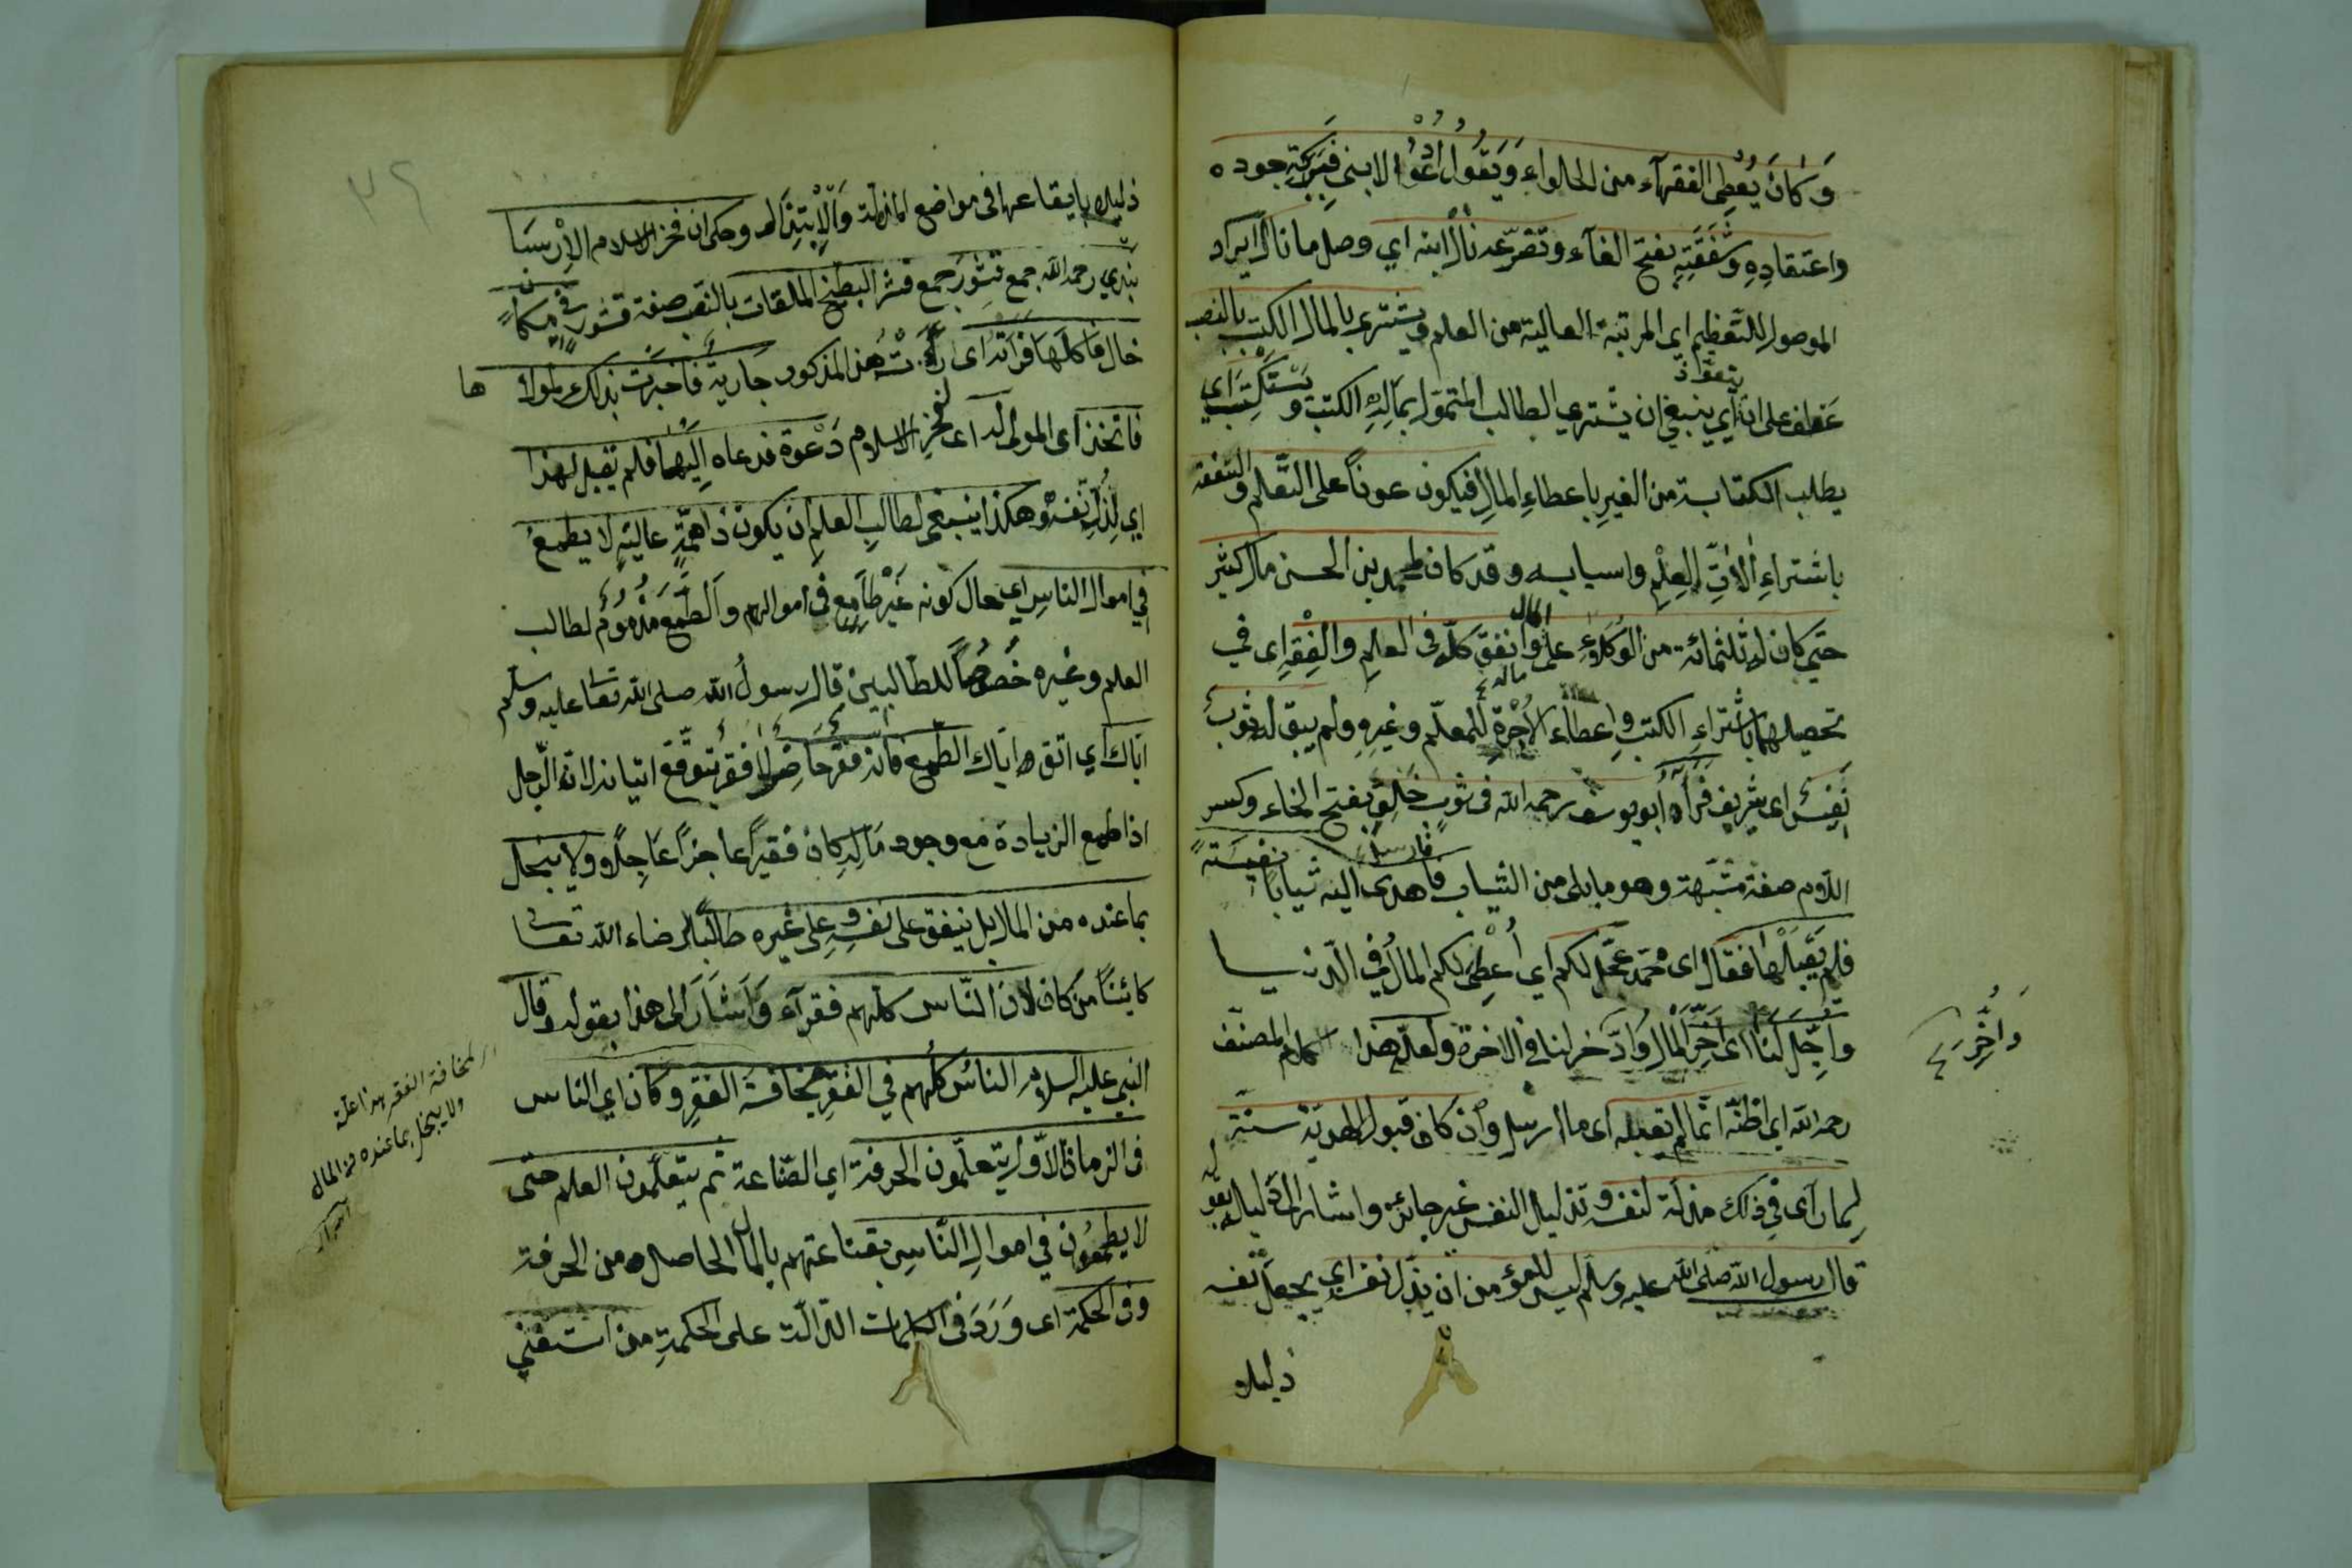 وَكانَ يُعْطِى الفقهآء من الحلواء وَيَقُولُ ادْعُوْا لابنى فَبِبَرَكَةِ جوده
واعتقادِهِ وَشَفَقَتِهِ بفتح الفآء وتضرّعه نالَ ابنه اي وصل ما نالَ ايراد
الموصول للتَّعظيم اى المرتبة العالية من العلم ويشترى بالمال الكتب بالنصب
عَطف على اي ينبغى ان يشتري الطالب المتموّل بمالِهِ الكتب وَيَسْتَكْتِبَ اي
يطلب الكتابة من الغيرِ باعطاءِ المالِ فيكون عوناً على التَّعلّم والتفقه
باشتراءِ الاٰتِ العِلْمِ واسبابه وقد كان لمحمد بن الحسن مال كثير
حتى كان له ثلثمائة من الوُكَلاءِ على المال وانفق كلّه فى العلمِ والفِقْهِ اى في
تحصيلهما باشتراءِ الكتبِ واِعطاء الاُجْرةِ للمعلّم وغيرِهِ ولم يبق له ثوبٌ
نَفِيسٌ اى شريف فَرَأٰهُ ابو يوسف رحمه الله فى ثوبٍ خَلِقٍ بفتح الخاء وكسر
اللام صفة مشبّهة وهو ما بلى من الثياب فارسل فاهدى اليه ثياباً نفيسَةً
فلم يَقْبَلْهَا فقال اى محمّد عجّل لكم اي اُعْطِىَ لكم المالُ فِي الدّنيا
وَاُجِّلَ لَنَا اى اُخِّرَ المَال وَادّخر لنا فى الاخرة ولعلّ هذا كلام المصنّف
رحمه الله اي اظنّه انّما لم يقبله اى ما ارسل وان كان قبول الهديّة سنّة
لِما رآى فى ذلك مذلّة لنفسه وتذليل النفس غير جائزه واشار الى دليله بقوله
قال رسول الله صلى الله عليه وسلم ليس للمؤمن ان يذلّ نفسه اي يجعل نفسه
ذليلاً
وَاُخِّرَ
٣٦
ذليلاً بايقاعها فى مواضع المذلّة وَالْاِبْتِذَال وحكى ان فخر الاسلام الاِرْسَا
بَندي رحمه الله جمع قشورَ جمع قشر البطيخ الملقات بالنصب صفة قشور فى مكانٍ
خال فاكلها فَرَأتْهُ اى رَأَتْ هذا المذكور جارية فاخبرَت بذلك لمولاها
فاتّخذ اى المولى له اى لفخر الاسلام دَعْوة فدعاه اِلَيْهَا فلم يقبل لهذا
اي لِذُلِّ نَفْسِهِ وهكذا ينبغى لطالبِ العلمِ ان يكون ذا هِمّةٍ عاليةٍ لا يطمعُ
فِي اموال الناسِ اى حال كونه غَيْر طَامِعٍ فى اموالهم والطَّمَع مَذْمُومٌ لطالب
العلم وغيره خُصُوصاً للطالبين قال رسولُ الله صلى الله تعالى عليه وسلم
ايّاك اي اتّق ايّاك الطمع فانّه فَقْرٌ حَاضِرٌ لا فقرٌ يتوقّع اتيانه لانّ الرّجل
اذا طمع الزيادة مع وجود مَالِهِ كان فقيراً عاجزاً عَاجِلًا ولا يبخل
بما عنده من المال بل ينفق على نفسِهِ وعلى غيره طالباً لرضاء الله تعالى
كائِنًا من كان لانّ النّاس كلّهم فقرآء وَاَشَارَ الى هذا بقوله وقال
النبى عليه السلام الناسُ كلُهم في الفقرِ مخافةَ الفقرِ وكان اي الناس
فى الزمان الاوّل يتعلّمون الحرفة اي الصّناعة ثم يتعلّمون العلم حتّى
لا يطمعون في اموالِ النّاسِ بقناعتهم بالمال الحاصلِ من الحرفة
وفى الحكمة اى وَرَدَ فى الكلمات الدّالّة على الحكمةِ من استغنى
لمخافة الفقر هذا علّة
ولا يبخل بما عنده من المال